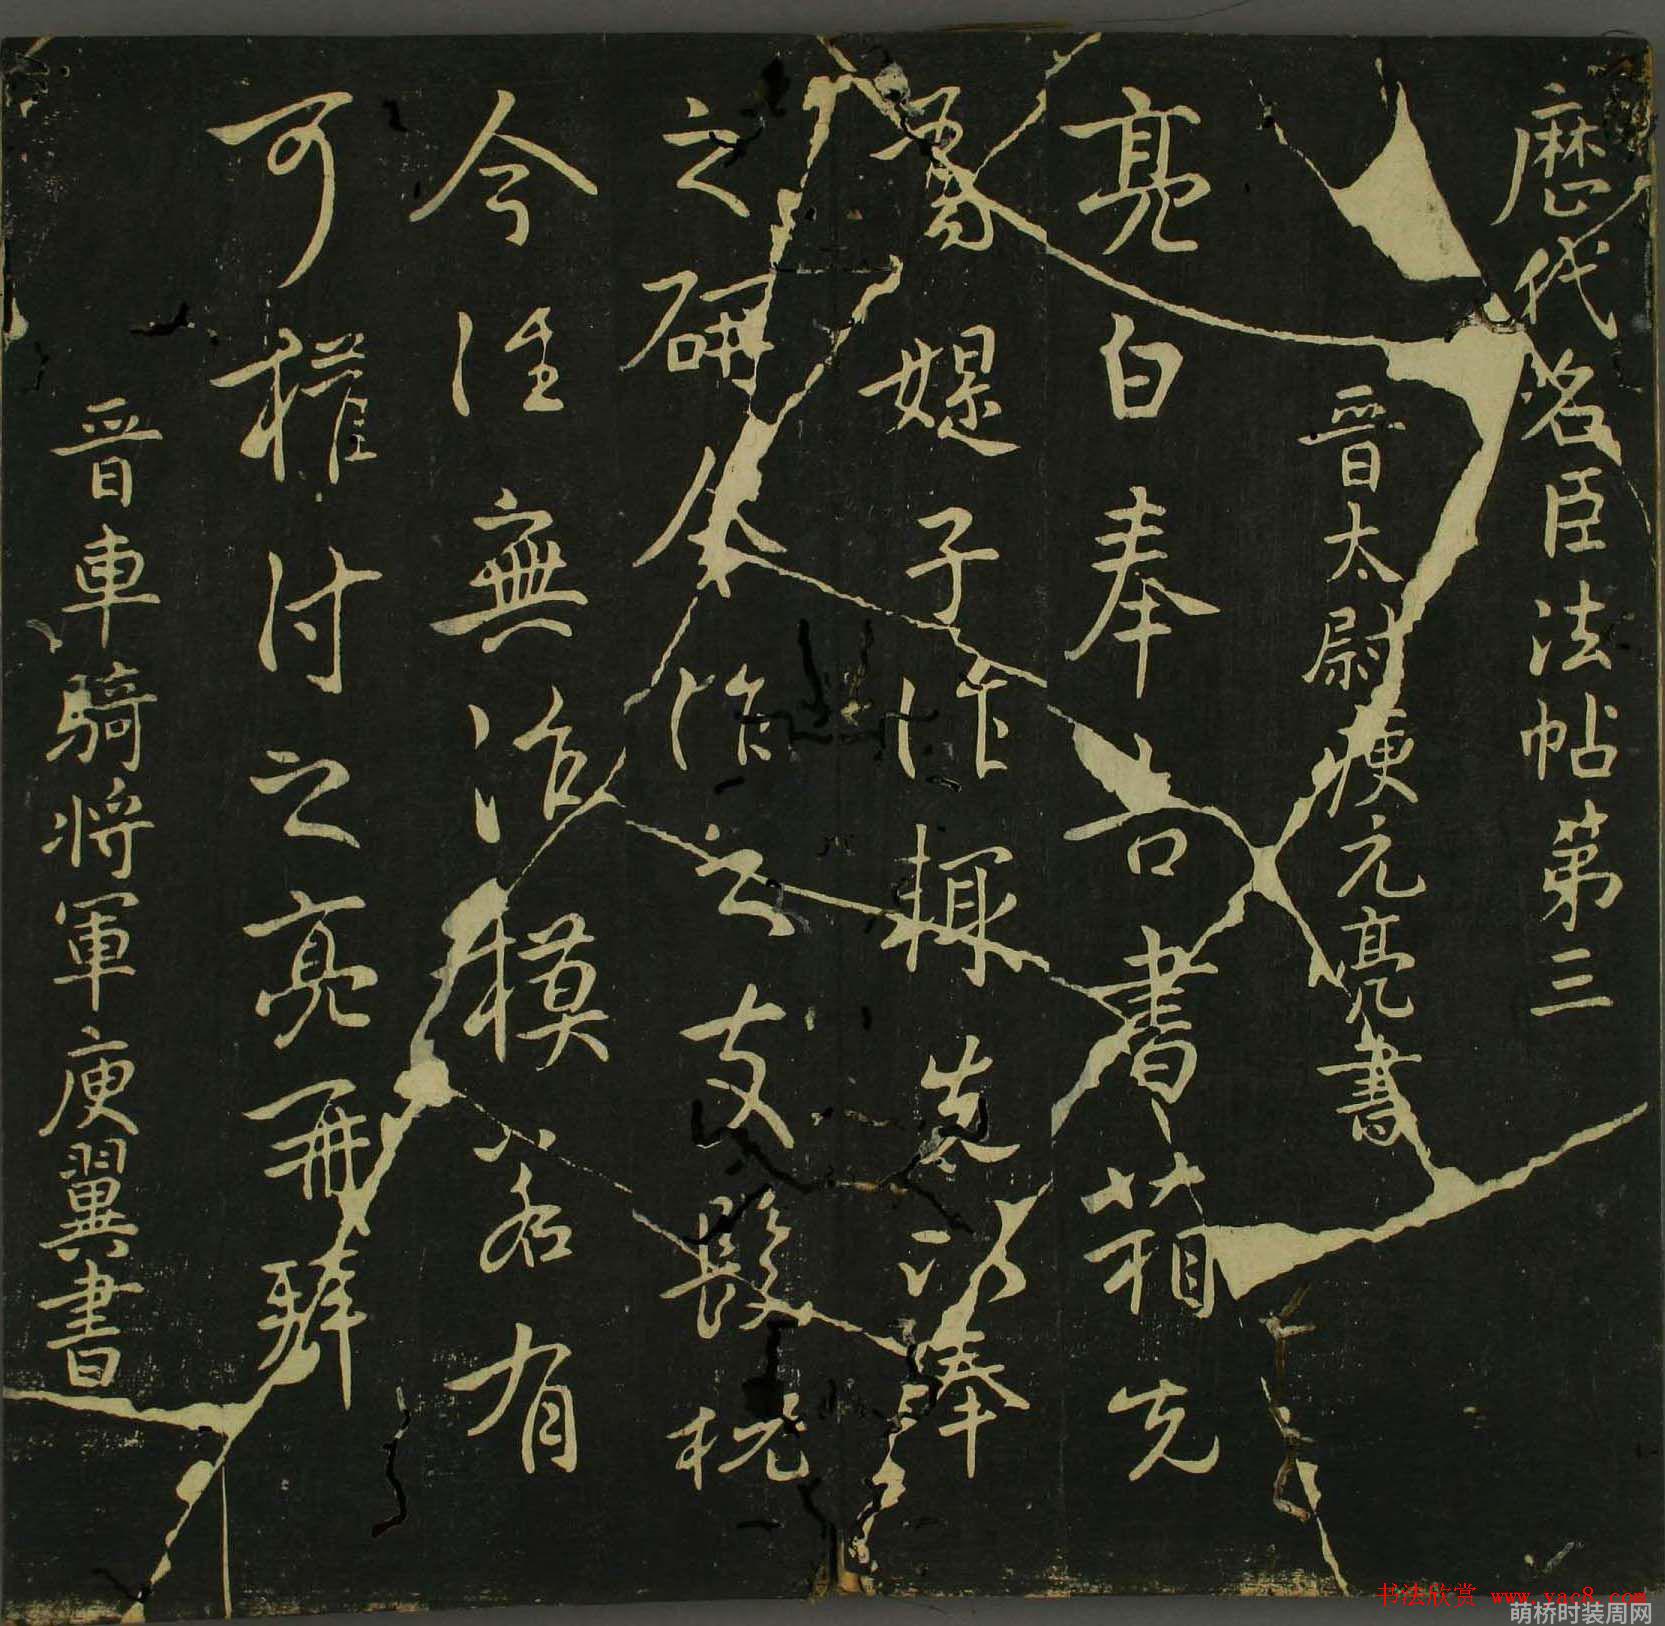 歷代名臣法帖第三
晉太尉庾元亮書
亮白奉告書箱先
媞子作輒先以奉
之研金作之支髮梳
今往無治模若有
可權付之亮再拜
晉車騎將軍庾翼書
书法欣赏 www.yac8.com
萌桥时装周网